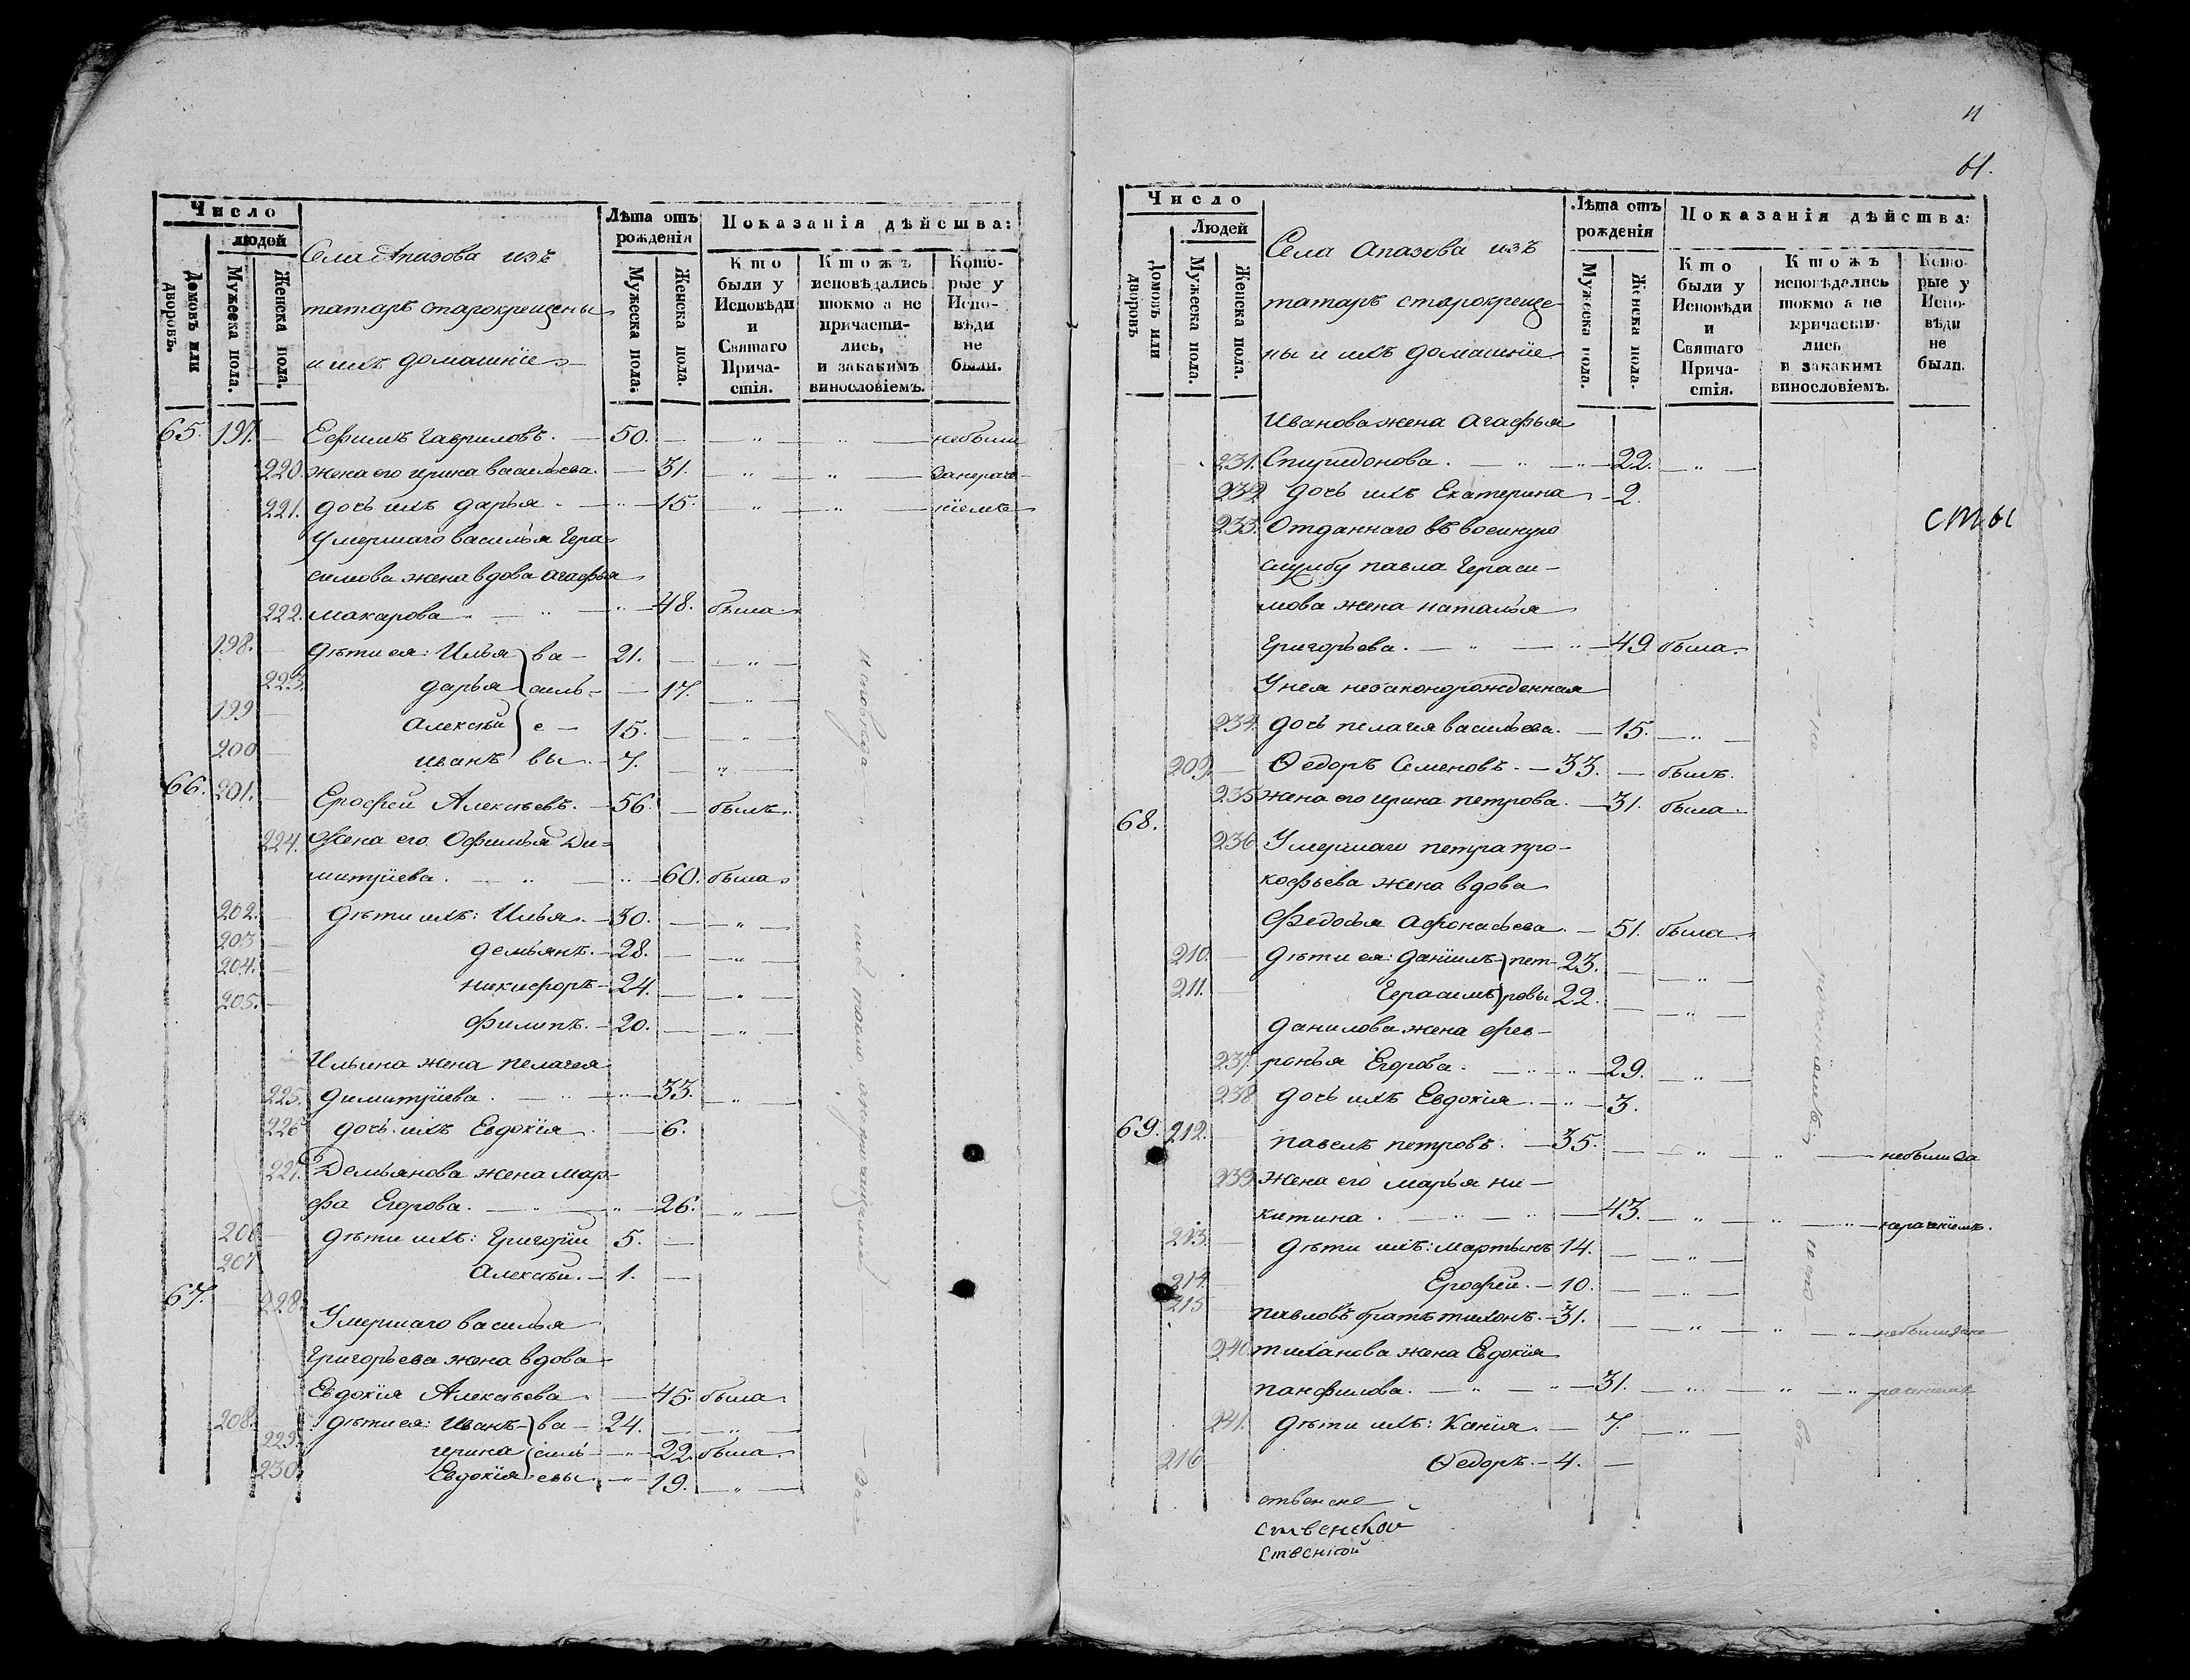 Число
людей
Домовъ или дворовъ.
Мужеска пола.
Женска пола.
Села Апазова изъ
татаръ старокрещены
и ихъ домашніе
Лѣта отъ рожденія
Мужеска пола.
Женска пола.
Показанія дѣйства:
Кто были у Исповѣди и Святаго Причастія.
Ктожъ исповѣдались токмо а не причастились, и закакимъ винословіемъ.
Которые у Исповѣди не были.
65. 197. — Ефимъ Гавриловъ. — 50. — — " " — небыли
220 жена его ирина васильева. — 31. " — " — занераче-
221. дочь ихъ дарья. — " — 15. " — " — ніемъ
Умершаго василья Гера-
симова жена вдова агафья
222. макарова — " — " — 48. была
198. — дѣти ея: Илья } ва — 21. — — " —
223. дарья } силь- — 17. — " —
199 — Алексѣй } е — 15. — — " —
200 — иванъ вы. — 7. — " —
66. 201. — Ерофей Алексѣевъ. — 56. — былъ.
224. Жена его Офимья Ди-
митріева. — " — " — 60. была
202. — дѣти ихъ: Илья. — 30. — — " —
203 — демьянъ. — 28. — — " —
204. — никифоръ — 24. — — " —
205. — филипъ. — 20. — — " —
Ильина жена пелагея
225. димитріева. — " — " — 33. — " —
226 дочь ихъ Евдокія. — 6.
227. Демьянова жена мар-
фа Егорова. — " — " — 26. — " —
206 — дѣти ихъ: Григорій 5. —
207 Алексѣй. — 1. —
67. — 228. Умершаго василья
Григорьева жена вдова
Евдокія Алексѣева. — 45. была
208. — дѣти ея: Иванъ } ва — 24. — — " —
229. ирина } силь — " — 22. была.
230. Евдокія } евы. — " — 19. — " —
61.
Число
Людей
Домовъ или дворовъ
Мужеска пола.
Женска пола.
Села Апазова изъ
татаръ старокреще-
ны и ихъ домашніе
Лѣта отъ рожденія
Мужеска пола.
Женска пола.
Показанія дѣйства:
Кто были у Исповѣди и Святаго Причастія.
Ктожъ исповѣдались токмо а не причастились и закакимъ винословіемъ.
Которые у Исповѣди не были.
Иванова жена Агафья
231. Спиридонова. — " — " — 22. — " —
232 дочь ихъ Екатерина — 2.
233. Отданнаго въ военную
службу павла Гераси-
мова жена наталья
Григорьева. — " — " — 49 была.
У нея незаконорожденная
234. дочь пелагея васильева. — 15. — " —
209. — Ѳедоръ Семеновъ. — 33. — былъ.
235 жена его ирина петрова. — 31. была
68. 236 Умершаго петра про-
кофьева жена вдова
Федосья Афонасьева. — 51. была
210. — дѣти ея: даніилъ } пет- 23. — — " —
211. — Герасимъ } ровы 22. — — " —
данилова жена фев-
237. ронья Егорова. — " — " — 29. — " —
238 дочь ихъ Евдокія. — " — 3.
69. 212. — павелъ петровъ. — 35. — — " — " — небыли за
239. жена его марья ни-
китина. — " — " — 43. — " — " — " — нераченіемъ.
213. — дѣти ихъ: мартынъ 14. — — " —
214. — Ерофей. — 10. — — " —
215 павловъ братъ тихонъ. — 31. — — " — " — " — небыли зане
240. тиханова жена Евдокія
панфилова. — " — " — 31. — " — " — " — раченіемъ
241. дѣти ихъ: Ксенія. — 7. — " —
216 Ѳедоръ. — 4. —
ственской